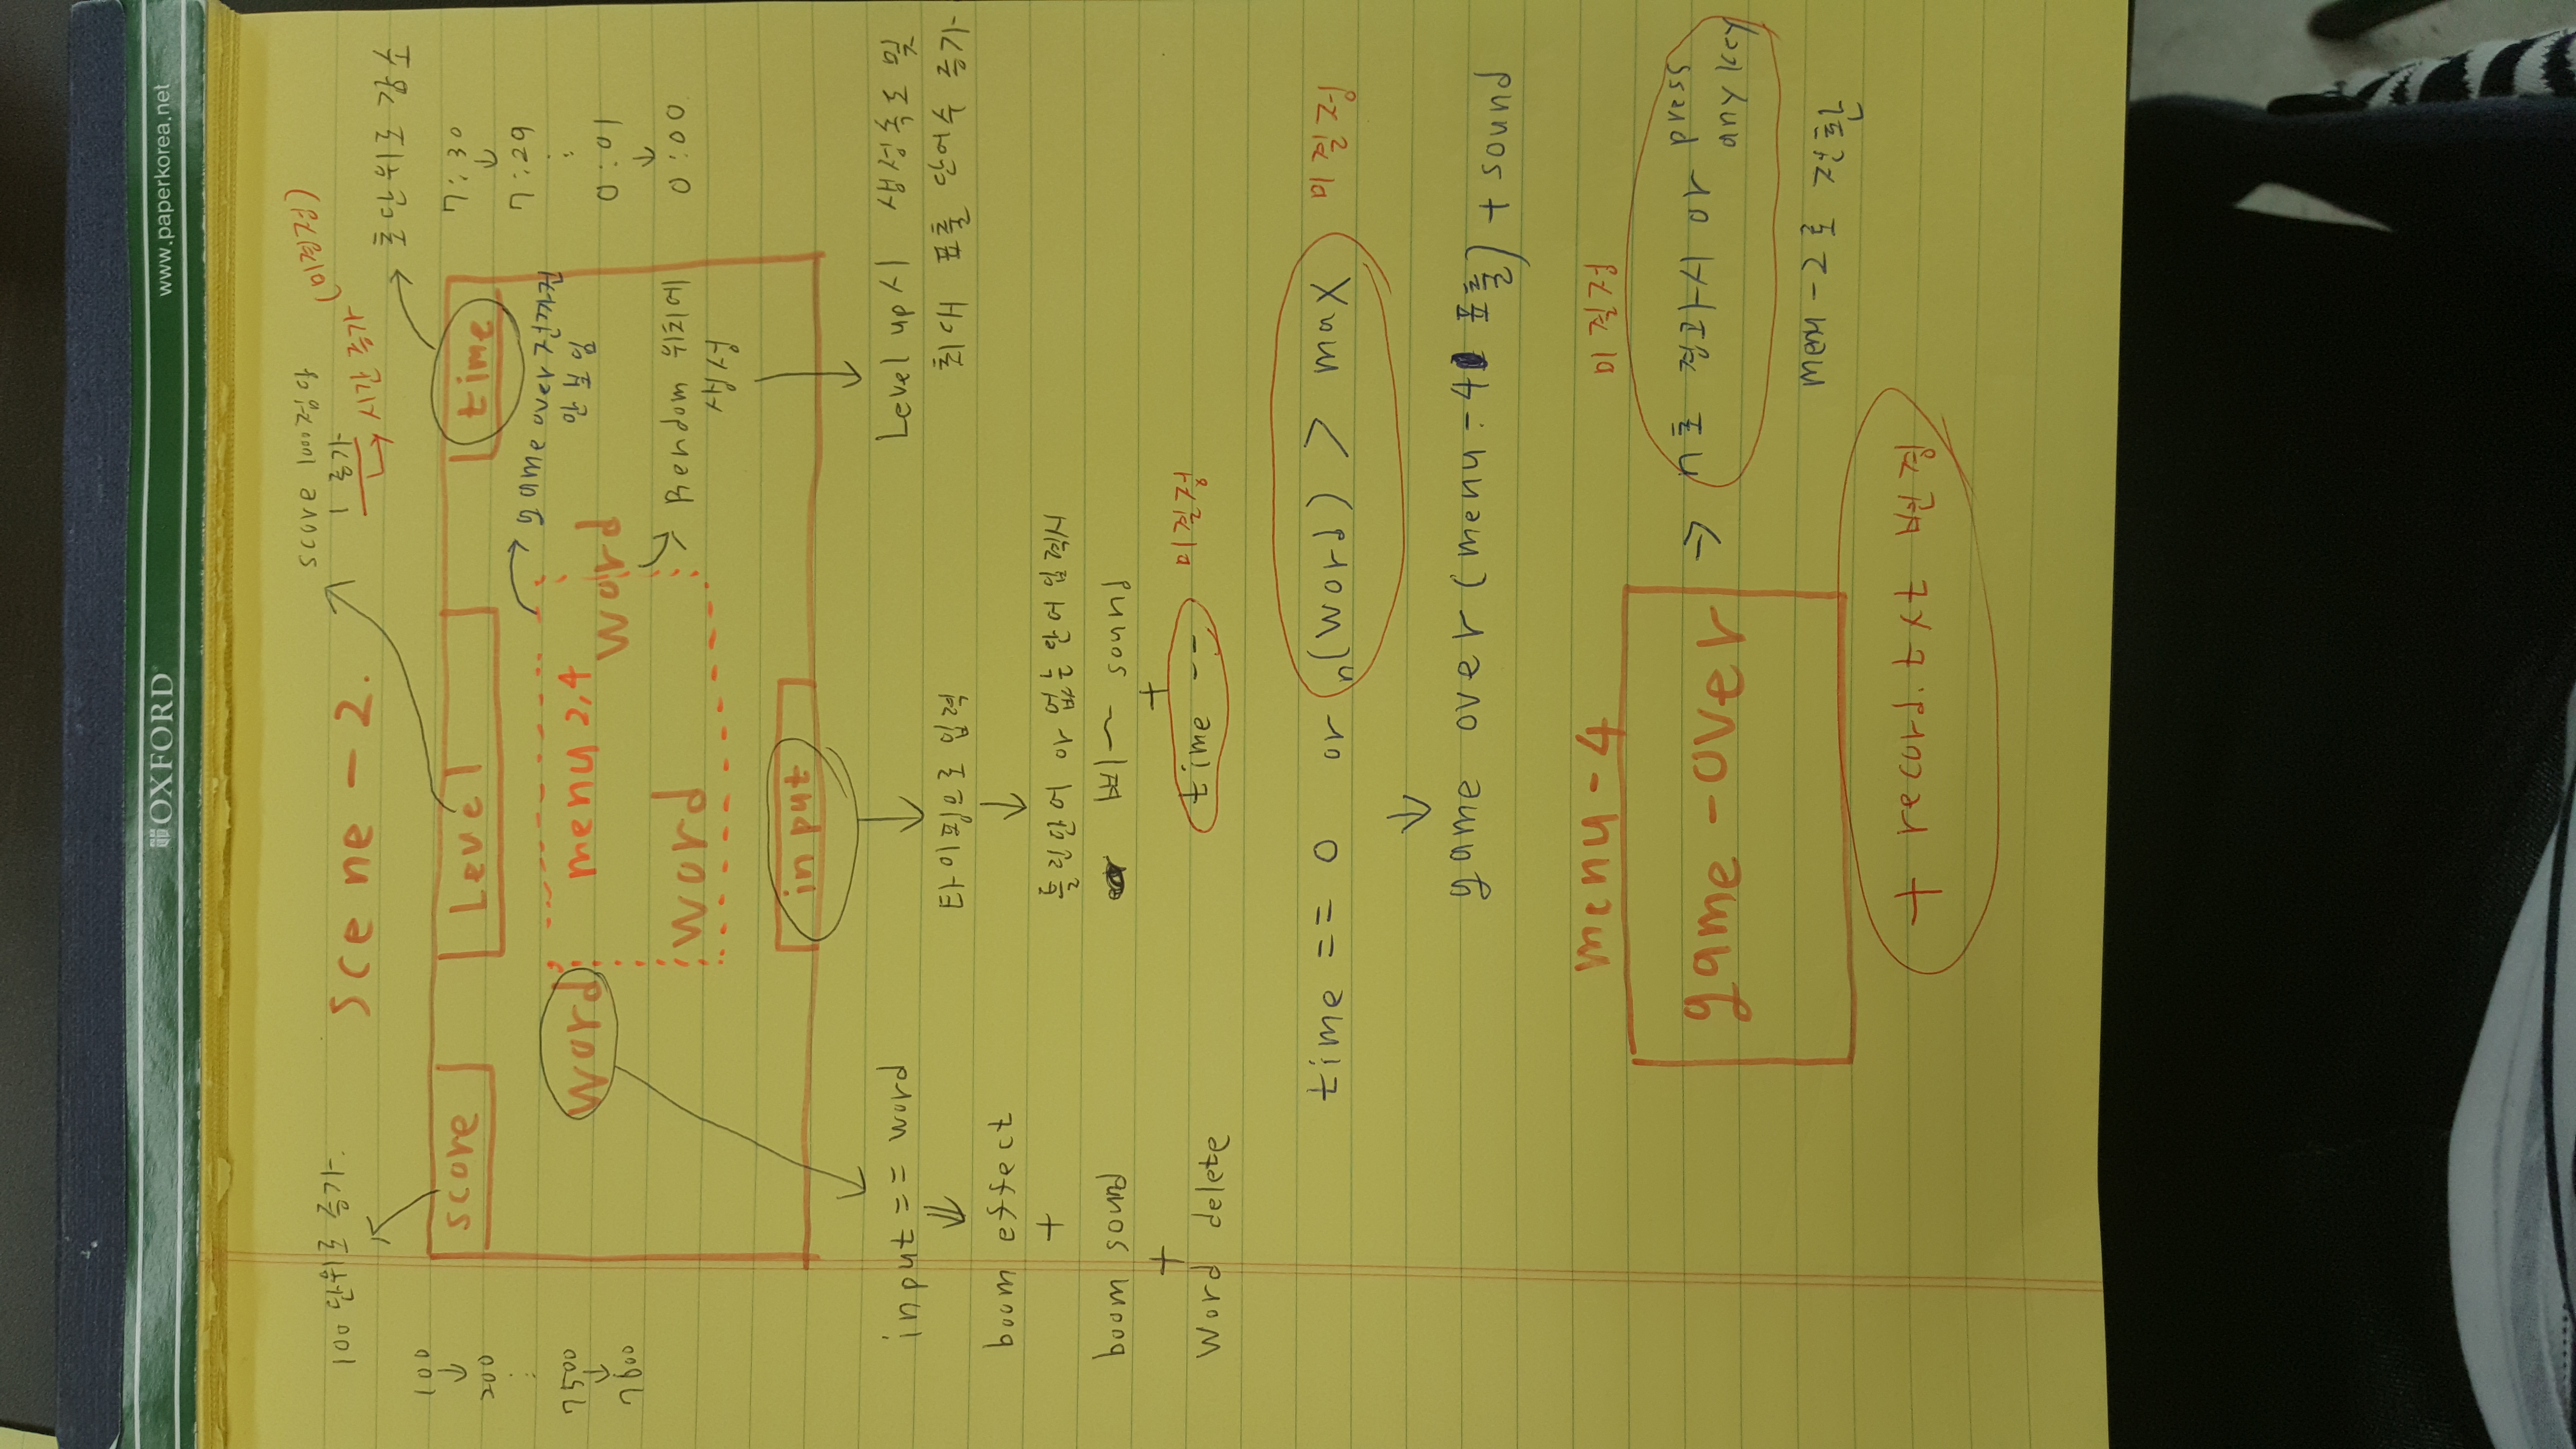 OXFORD
www.paperkorea.net
100 단위로 증가.
scene - 2.
score 1000점당
1 증가
→ 시간 증가
(미결정)
초단위로 감소
100
↓
200
:
:
7500
↓
7600
score
Level
time
7:30
↓
7:29
:
:
0:01
↓
0:00
game over 전까진
안보임
word
menu 2,4
word
word
Rendom 위치에
생성
input
input == word
⇓
boom effect
+
boom sound
+
Word delete
타이핑으로 입력
↓
틀린단어 or 없는 단어 입력시
삐~ sound
+
time --
미결정
Level up시 생성속도 및
최대 표출 단어수 증가
time == 0 or n(word) > max
미결정
↓
game over (menu-4 표출) + sound
menu-4
game-over
미결정
→ n초 경과시 or press
any key
menu-2로 전환
+ record.txt 변경